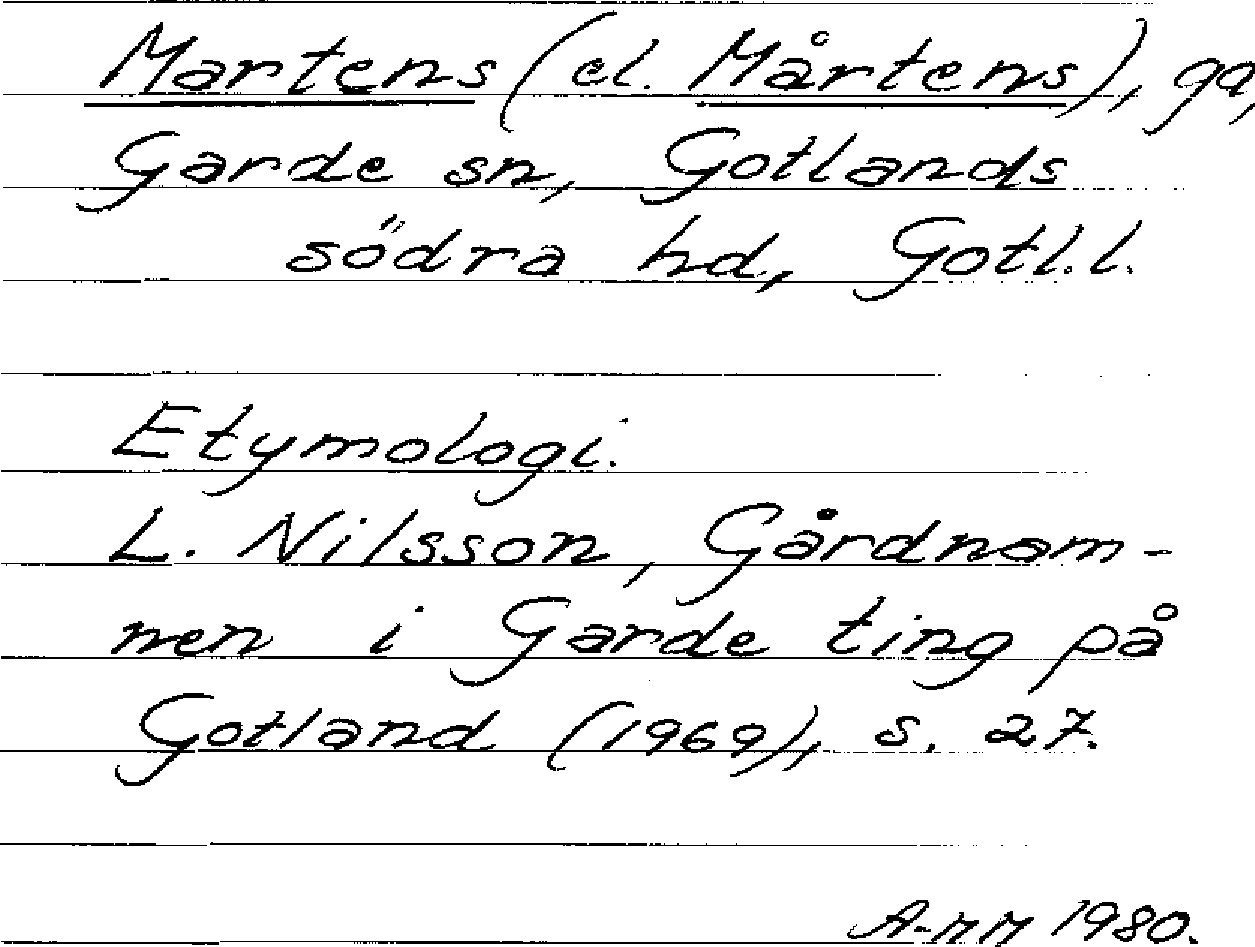 Martens (el. Mårtens), ga,
Garde sn, Gotlands
södra hd, Gotl.l.
Etymologi.
L. Nilsson, Gårdnam-
nen i Garde ting på
Gotland (1969), s. 27.
A-MM 1980.